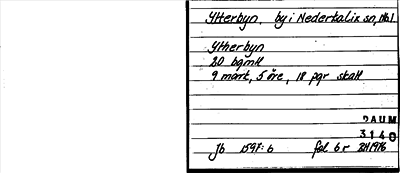 Ytterbyn by i Nederkalix sn, Nb.l
Ytherbyn
20 bgmtl
9 mark, 5 öre, 18 pgr skatt
DAUM
3140
Jb 1597:6 fol 6 r